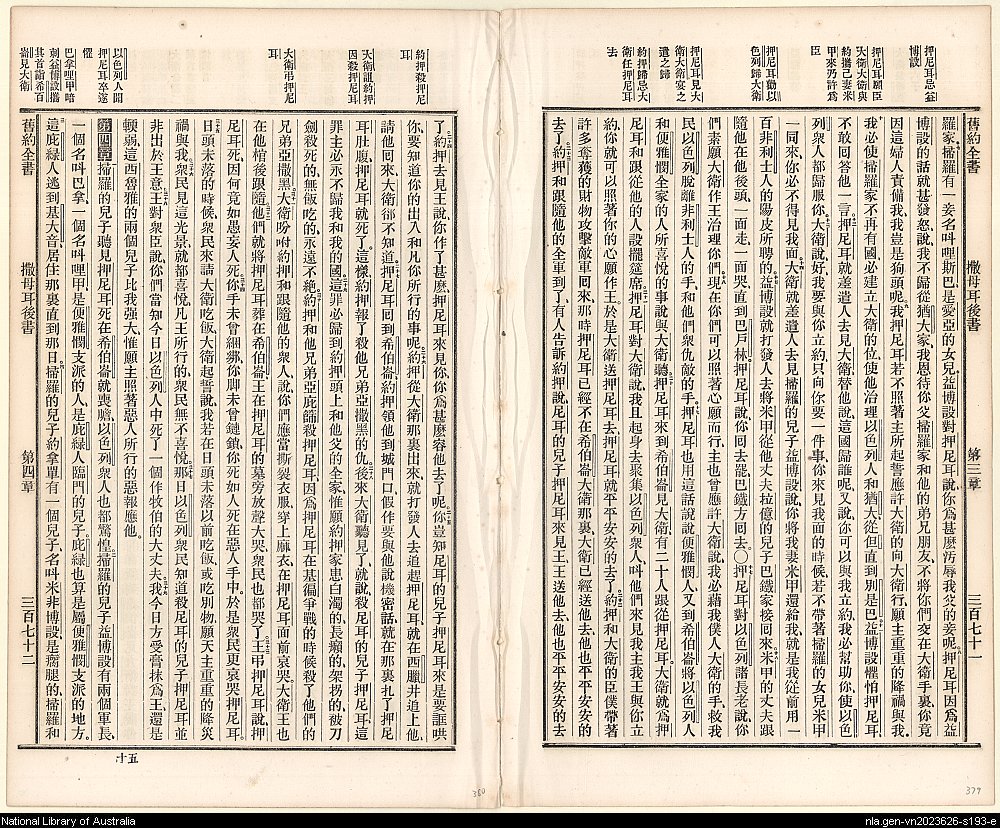 押尼耳忌益
博設
押尼耳願臣
大衛大衛與
約攜己妻米
甲來乃許為
臣
押尼耳勸以
色列歸大衛
押尼耳見大
衛大衛宴之
遣之歸
約押歸忌大
衛任押尼耳
去
舊約全書 撒母耳後書 第三章 三百七十一
羅家掃羅有一妾名叫哩斯巴是愛亞的女兒益博設對押尼耳說你為甚麽汚辱我父的妾呢押尼耳因為益
博設的話就甚發怒說我不歸從猶大家我恩待你父掃羅家和他的弟兄朋友不將你們交在大衛手裏你竟
因這婦人責備我我豈是狗頭呢我押尼耳若不照著主所起誓應許大衛的向大衛行願主重重的降禍與我
我必使掃羅家不再有國必建立大衛的位使他治理以色列人和猶大從但直到別是巴益博設懼怕押尼耳
不敢回答他一言押尼耳就差遣人去見大衛替他說這國歸誰呢又說你可以與我立約我必幫助你使以色
列衆人都歸服你大衛說好我要與你立約只向你要一件事你來見我面的時候若不帶著掃羅的女兒米甲
一同來你必不得見我面大衛就差遣人去見掃羅的兒子益博設說你將我妻米甲還給我就是我從前用一
百非利士人的陽皮所聘的益博設就打發人去將米甲從他丈夫拉億的兒子巴鐵家接回來米甲的丈夫跟
隨他在他後頭一面走一面哭直到巴戶林押尼耳說你回去罷巴鐵方回去〇押尼耳對以色列諸長老說你
們素願大衛作王治理你們現在你們可以照著心願而行主也曾應許大衛說我必藉我僕人大衛的手救我
民以色列脫離非利士人的手和他們衆仇敵的手押尼耳也用這話說說便雅憫人又到希伯崙將以色列人
和便雅憫全家的人所喜悅的事說與大衛聽押尼耳來到希伯崙見大衛有二十人跟從押尼耳大衛就為押
尼耳和跟從他的人設擺筵席押尼耳對大衛說我且起身去聚集以色列衆人叫他們來見我主我王與你立
約你就可以照著你的心願作王於是大衛送押尼耳去押尼耳就平平安安的去了約押和大衛的臣僕帶著
許多奪獲的財物攻擊敵軍回來那時押尼耳已經不在希伯崙大衛那裏大衛已經送他去他也平平安安的
去了約押和跟隨他的全軍到了有人告訴約押說尼耳的兒子押尼耳來見王王送他去他也平平安安的去
約押殺押尼
耳
大衛詛約押
因殺押尼耳
大衛弔押尼
耳
以色列人聞
押尼耳卒遂
懼
巴拿哩甲暗
刺益博設攜
其首詣希百
崙見大衛
了約押去見王說你作了甚麽押尼耳來見你你為甚麽容他去了呢你豈知尼耳的兒子押尼耳來是要誆哄
你要知道你的出入和凡你所行的事呢約押從大衛那裏出來就打發人去追趕押尼耳就在西臘井追上他
請他回來大衛卻不知道押尼耳回到希伯崙約押領他到城門口假作要與他說機密話就在那裏扎了押尼
耳肚腹押尼耳就死了這樣約押報了殺他兄弟亞撒黑的仇後來大衛聽見了就說殺尼耳的兒子押尼耳這
罪主必永不歸我和我的國這罪必歸到約押頭上和他父的全家惟願約押家患白濁的長癩的架拐的被刀
劍殺死的無飯吃的永遠不絶約押和他兄弟亞庇篩殺押尼耳因為押尼耳在基徧爭戰的時候殺了他們的
兄弟亞撒黑大衛吩咐約押和跟隨他的衆人說你們應當撕裂衣服穿上麻衣在押尼耳面前哀哭大衛王也
在他棺後跟隨他們就將押尼耳葬在希伯崙王在押尼耳的墓旁放聲大哭衆民也都哭了王弔押尼耳說押
尼耳死因何竟如愚妄人死你手未曾綑綁你脚未曾鏈鎖你死如人死在惡人手中於是衆民更哀哭押尼耳
日頭未落的時候衆民來請大衛吃飯大衛起誓說我若在日頭未落以前吃飯或吃別物願天主重重的降災
禍與我衆民見這光景就都喜悅凡王所行的衆民無不喜悅那日以色列衆民知道殺尼耳的兒子押尼耳並
非出於王意王對衆臣說你們當知今日以色列人中死了一個作牧伯的大丈夫我今日方受膏抹為王還是
輭弱這西魯雅的兩個兒子比我强大惟願主照著惡人所行的惡報應他
第四章掃羅的兒子聽見押尼耳死在希伯崙就喪膽以色列衆人也都驚惶掃羅的兒子益博設有兩個軍長
一個名叫巴拿一個名叫哩甲是便雅憫支派的人是庇緑人臨門的兒子庇緑也算是屬便雅憫支派的地方
這庇緑人逃到基大音居住那裏直到那日掃羅的兒子約拿單有一個兒子名叫米非博設是瘸腿的掃羅和
舊約全書 撒母耳後書 第四章 三百七十二
十五
380
379
National Library of Australia
nla.gen-vn2023626-s193-e